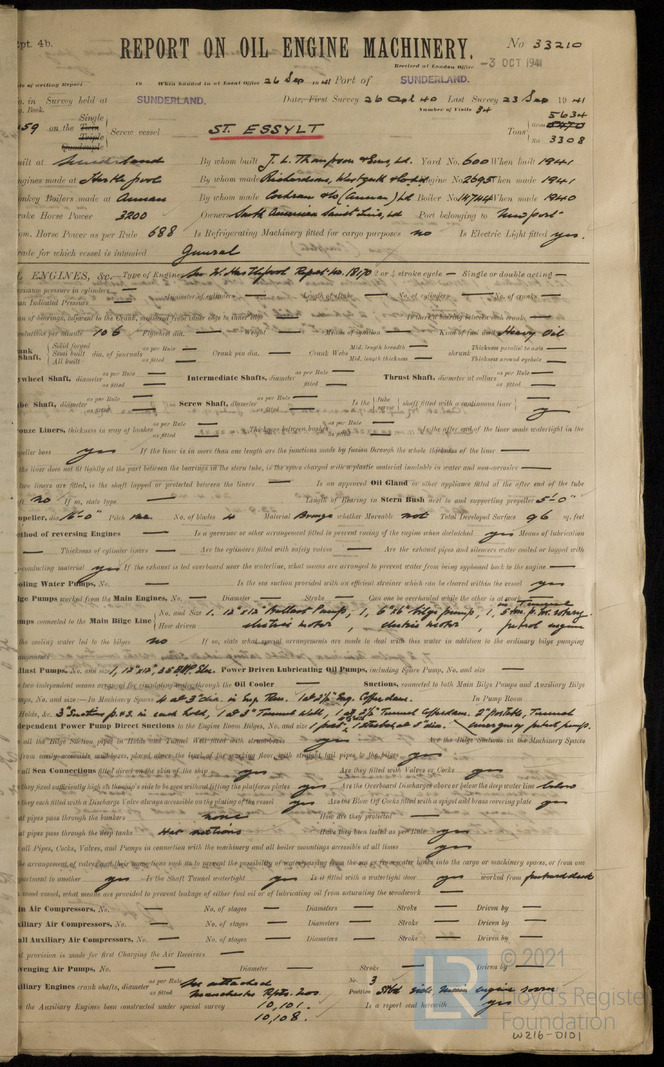 Rpt. 4b.
REPORT ON OIL ENGINE MACHINERY.
No 33210
Received at London Office
-3 OCT 1941
of writing Report 19 When handed in at Local Office 26 Sep 1941 Port of SUNDERLAND.
in Survey held at SUNDERLAND. Date, First Survey 26 Apl 40 Last Survey 23 Sep 1941
Book. Number of Visits 84
59 on the Single Twin Triple Quadruple Screw vessel ST. ESSYLT Tons Gross 5634 5470 Net 3308
Built at Sunderland By whom built J. L. Thompson & Sons, Ld. Yard No. 600 When built 1941
Engines made at Hartlepool By whom made Richardsons, Westgarth & Co Ld Engine No. 2695 When made 1941
Donkey Boilers made at Annan By whom made Cochran & Co (Annan) Ld Boiler No. 14744 When made 1940
Brake Horse Power 3200 Owners South American Saint Line, Ld Port belonging to Newport
Nom. Horse Power as per Rule 688 Is Refrigerating Machinery fitted for cargo purposes no Is Electric Light fitted yes.
Trade for which vessel is intended General
ENGINES, &c. Type of Engines See W. Hartlepool Report No. 18170 2 or 4 stroke cycle — Single or double acting —
pressure in cylinders — Diameter of cylinders — Length of stroke — No. of cylinders — No. of cranks —
Indicated Pressure —
of bearings, adjacent to the Crank, measured from inner edge to inner edge — Is there a bearing between each crank —
Revolutions per minute 106 Flywheel dia. — Weight — Means of ignition — Kind of fuel used Heavy Oil
Crank Shaft, Solid forged Semi built All built dia. of journals as per Rule — as fitted — Crank pin dia. — Crank Webs Mid. length breadth — Mid. length thickness — shrunk Thickness parallel to axis — Thickness around eyehole —
Flywheel Shaft, diameter as per Rule — as fitted — Intermediate Shafts, diameter as per Rule — as fitted — Thrust Shaft, diameter at collars as per Rule — as fitted —
Tube Shaft, diameter as per Rule — as fitted — Screw Shaft, diameter as per Rule — as fitted — Is the tube screw shaft fitted with a continuous liner
Bronze Liners, thickness in way of bushes as per Rule — as fitted — Thickness between bushes as per Rule — as fitted — Is the after end of the liner made watertight in the
propeller boss yes If the liner is in more than one length are the junctions made by fusion through the whole thickness of the liner —
the liner does not fit tightly at the part between the bearings in the stern tube, is the space charged with a plastic material insoluble in water and non-corrosive —
two liners are fitted, is the shaft lapped or protected between the liners — Is an approved Oil Gland or other appliance fitted at the after end of the tube
no If so, state type — Length of Bearing in Stern Bush next to and supporting propeller 5'-0"
Propeller, dia. 16'-0" Pitch No. of blades 4 Material Bronze whether Moveable not Total Developed Surface 96 sq. feet
Method of reversing Engines — Is a governor or other arrangement fitted to prevent racing of the engine when declutched yes Means of lubrication
— Thickness of cylinder liners — Are the cylinders fitted with safety valves — Are the exhaust pipes and silencers water cooled or lagged with
non-conducting material yes If the exhaust is led overboard near the waterline, what means are arranged to prevent water being syphoned back to the engine —
Cooling Water Pumps, No. — Is the sea suction provided with an efficient strainer which can be cleared within the vessel yes
Bilge Pumps worked from the Main Engines, No. — Diameter — Stroke — Can one be overhauled while the other is at work —
Pumps connected to the Main Bilge Line No. and Size 1, 12"x12" Ballast Pump, 1, 6"x6" bilge pump, 1, in Tunnel rotary.
How driven electric motor, electric motor, petrol engine
the cooling water led to the bilges no If so, state what special arrangements are made to deal with this water in addition to the ordinary bilge pumping
arrangements —
Ballast Pumps, No. and size 1, 12"x12", 35 BHP. Elec. Power Driven Lubricating Oil Pumps, including Spare Pump, No. and size —
two independent means arranged for circulating water through the Oil Cooler — Suctions, connected to both Main Bilge Pumps and Auxiliary Bilge
Pumps, No. and size:—In Machinery Spaces 4 at 3" dia. in Eng. Room. 1 at 2½" Eng. Cofferdam. In Pump Room —
Holds, &c. 3" Suction p. & s. in each hold, 1 at 3" Tunnel Well, 1 at 2½" Tunnel Cofferdam.
Independent Power Pump Direct Suctions to the Engine Room Bilges, No. and size 1 port, 1 starbd. at 5" dia. emergency petrol pump.
all the Bilge Suction pipes in Holds and Tunnel Well fitted with strum-boxes yes Are the Bilge Suctions in the Machinery Spaces
from easily accessible mud-boxes, placed above the level of the working floor, with straight tail pipes to the bilges yes
all Sea Connections fitted direct on the skin of the ship yes Are they fitted with Valves or Cocks yes
they fixed sufficiently high on the ship's side to be seen without lifting the platform plates yes Are the Overboard Discharges above or below the deep water line below
they each fitted with a Discharge Valve always accessible on the plating of the vessel yes Are the Blow Off Cocks fitted with a spigot and brass covering plate yes
pipes pass through the bunkers none How are they protected —
pipes pass through the deep tanks Hat suctions Have they been tested as per Rule yes
all Pipes, Cocks, Valves, and Pumps in connection with the machinery and all boiler mountings accessible at all times yes
the arrangement of valves and their connections such as to prevent the possibility of water passing from the sea or from water tanks into the cargo or machinery spaces, or from one
compartment to another yes Is the Shaft Tunnel watertight yes Is it fitted with a watertight door yes worked from
wood vessel, what means are provided to prevent leakage of either fuel oil or of lubricating oil from saturating the woodwork —
Main Air Compressors, No. — No. of stages — Diameters — Stroke — Driven by —
Auxiliary Air Compressors, No. — No. of stages — Diameters — Stroke — Driven by —
Small Auxiliary Air Compressors, No. — No. of stages — Diameters — Stroke — Driven by —
provision is made for first Charging the Air Receivers —
Scavenging Air Pumps, No. — Diameter — Stroke — Driven by —
Auxiliary Engines crank shafts, diameter as per Rule as fitted See attached Manchester Rpts. Nos No. 3 Position Stbd side main engine room
the Auxiliary Engines been constructed under special survey 10,101. 10,108. Is a report sent herewith yes
© 2021
LR
Lloyd's Register
Foundation
W216-0101